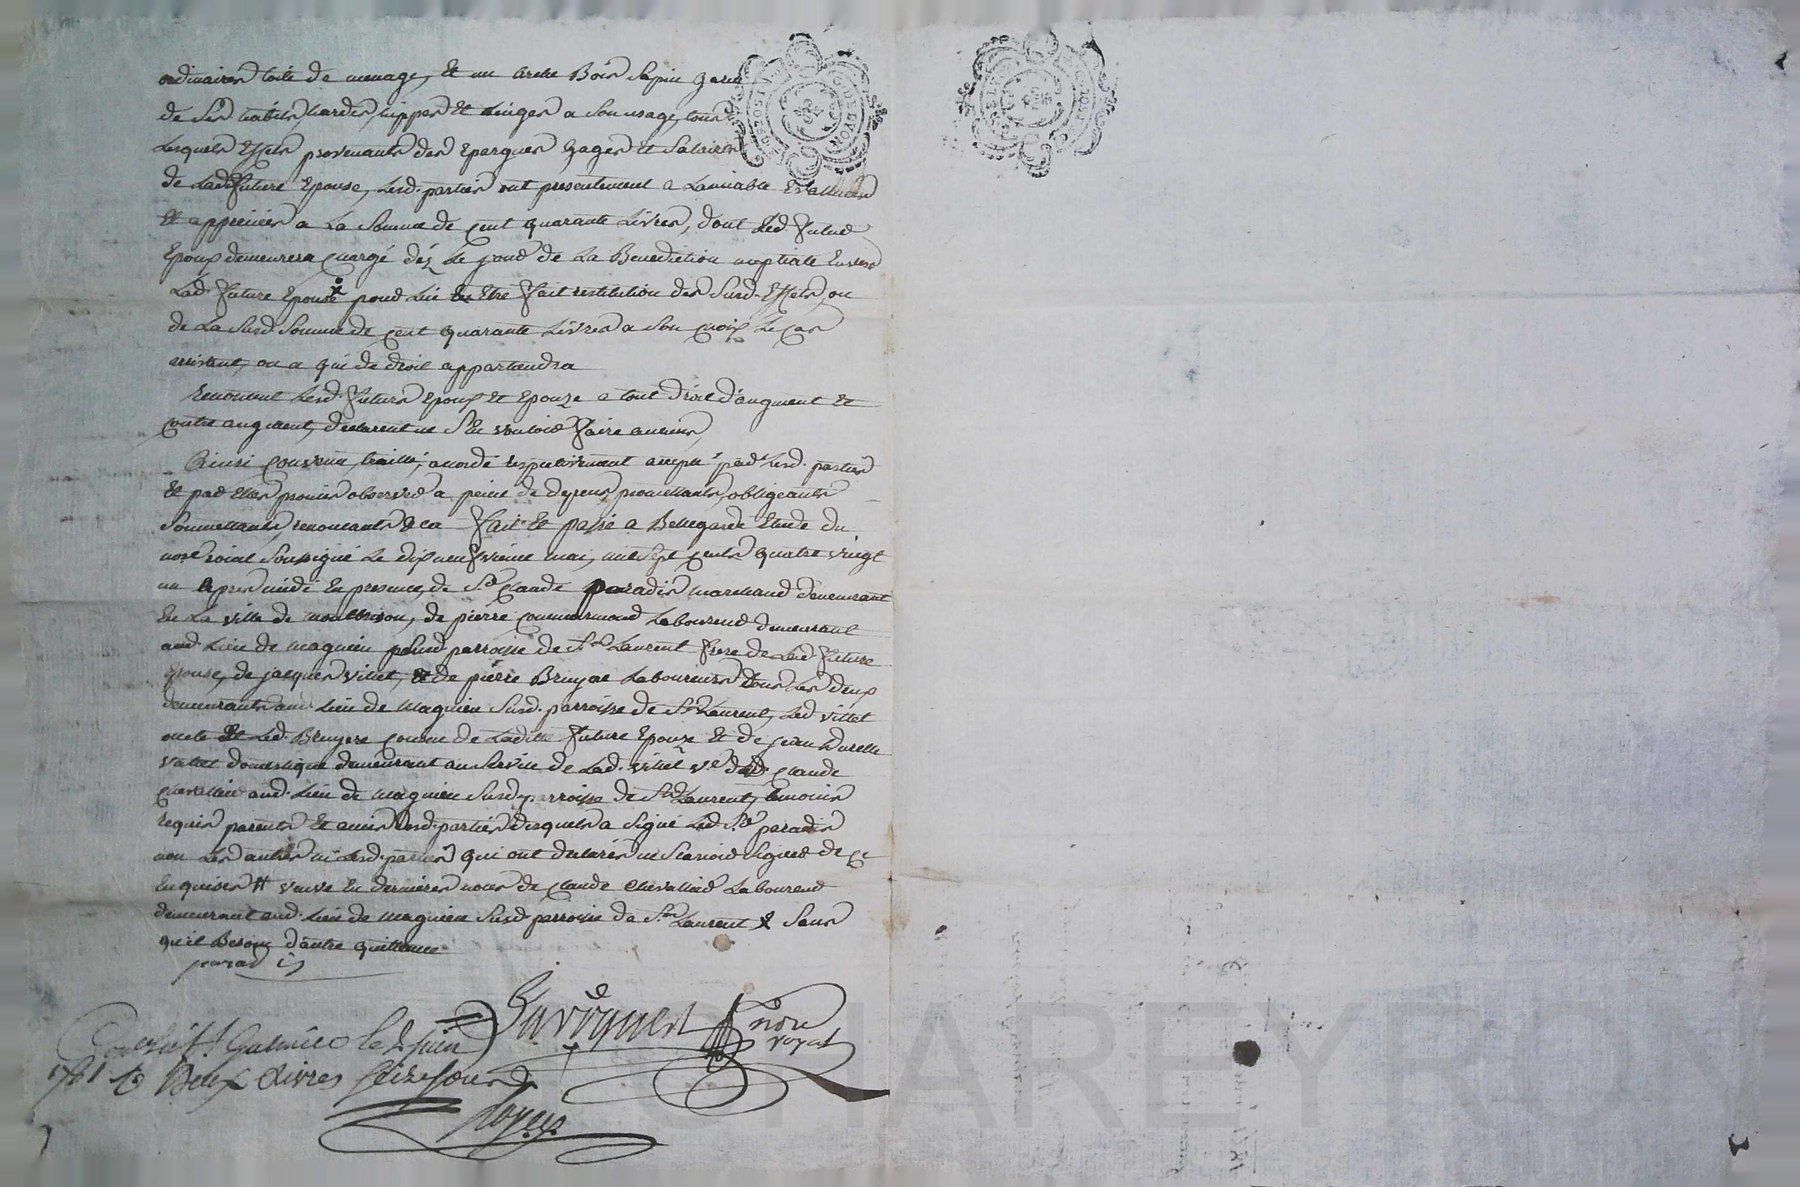 ordinaires toile de menage, et un arche Bois Sapin garni
de Ses habits, hardes, nippes et linges a Son usage, tous
Lesquels Effets provenants des Epargnes gages et Salaires
de Lad. future Epouse, Lesd. parties ont presentement a Lamiable Evalluées
et appreciés a La Somme de Cent quarante Livres, dont Led. futur
Epoux demeurera Chargé dés Le jour de La Benediction nuptiale Envers
Lad. future Epouse pour Lui En Etre fait restitution des Susd. Effets, ou
de La Susd. Somme de Cent quarante Livres a Son Choix Le Cas
arrivant, ou a qui de droit appartiendra
renoncent Lesd. futurs Epoux et Epouze a tout droit d'augment et
Contre augment, declarent ne S'En vouloir faire aucuns,
Ainsi Convenu, traitté, acordé respectivement accepté par Lesd. parties
et par Elles promis observer a peine de depens promettants, obligeants
Soumettants, renonçants &ca fait et passé a Bellegarde Etude du
nore. roial Soussigné Le dix neufvième mai, mil Sept Cents quatre vingt
un apres midi En presence, de Sr. Claude paradis marchand demeurant
En La ville de montbrison, de pierre Commarmond Laboureur demeurant
aud. Lieu de magnieu Susd. parroisse de St. Laurent frere de Lad. future
Epouse, de jacques villet, et de pierre Bruyere Laboureurs tous Les deux
demeurants aud. Lieu de Magnieu Susd. parroisse de St. Laurent, Led. villet
oncle et Led. Bruyere Cousin de Ladite future Epouze et de jean
valet domestique demeurant au Service de Lad. villet ve. dud. Claude
Chevallier aud. Lieu de Magnieu Susd. parroisse de St. Laurent, temoins
requis parents et amis desd. parties desquels a Signé Led. Sr. paradis
non Les autres ni Lesd. parties qui ont declarés ne Scavoir Signer de Ce
Enquises # veuve En dernieres noces de Claude Chevallier Laboureur
demeurant aud. Lieu de Magnieu Susd. parroisse de St. Laurent x Sans
qu'il Besoin d'autre quittance
paradis
nore
royal
Con.lé a St Galmier le 2 juin
1781 Deux Livres Seize Sous
CHAREYRON